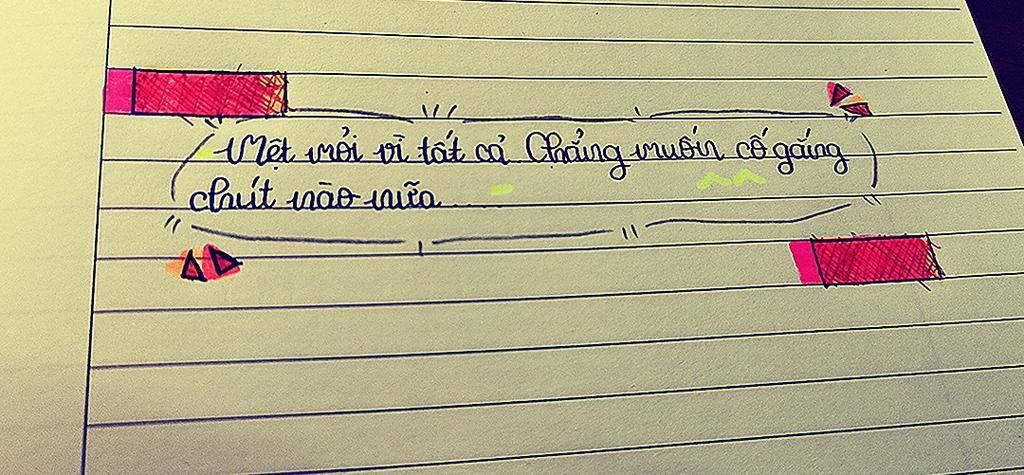 Mệt mỏi vì tất cả Chẳng muốn cố gắng
chút nào nữa.....